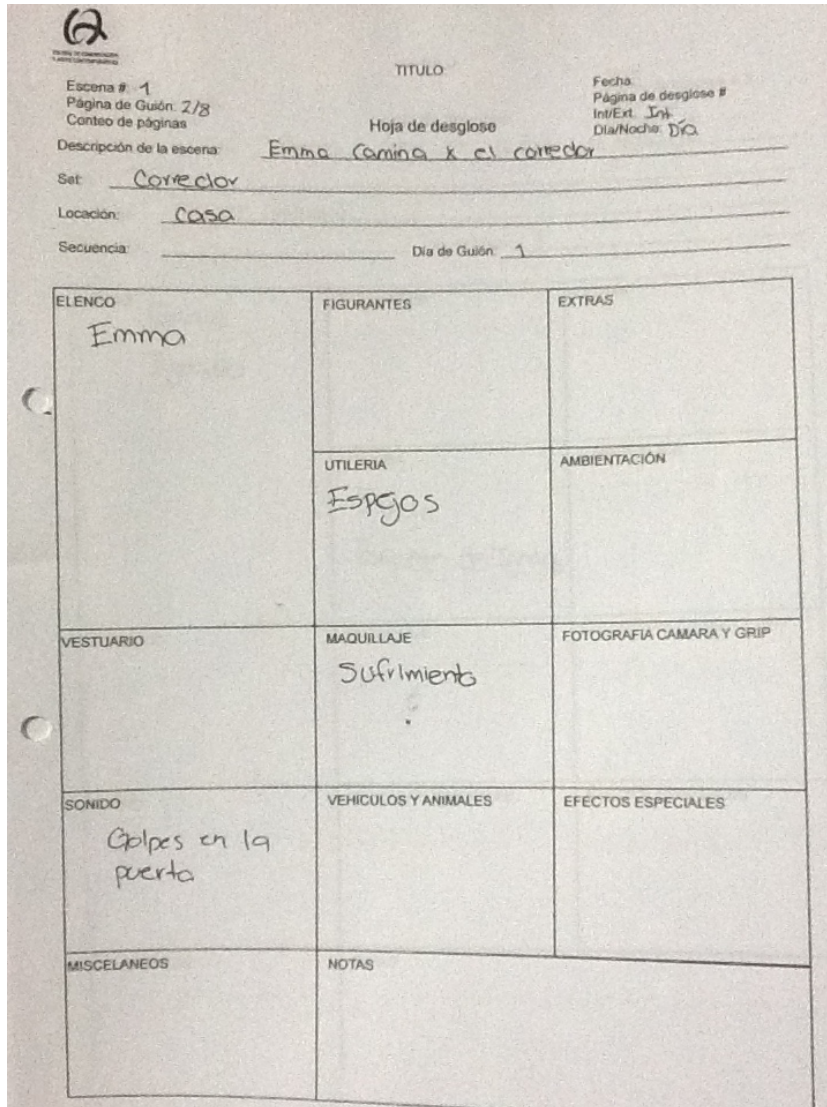 TITULO
Escena #: 1
Página de Guión: 2/8
Conteo de páginas
Hoja de desglose
Fecha:
Página de desglose #
Int/Ext: Int
Día/Noche: Día
Descripción de la escena: Emma Camina x el corredor
Set: Corredor
Locación: casa
Secuencia:
Día de Guión: 1
ELENCO
Emma
FIGURANTES
EXTRAS
UTILERIA
Espejos
AMBIENTACIÓN
VESTUARIO
MAQUILLAJE
Sufrimiento
FOTOGRAFIA CAMARA Y GRIP
SONIDO
Golpes en la
puerta
VEHICULOS Y ANIMALES
EFECTOS ESPECIALES
MISCELANEOS
NOTAS